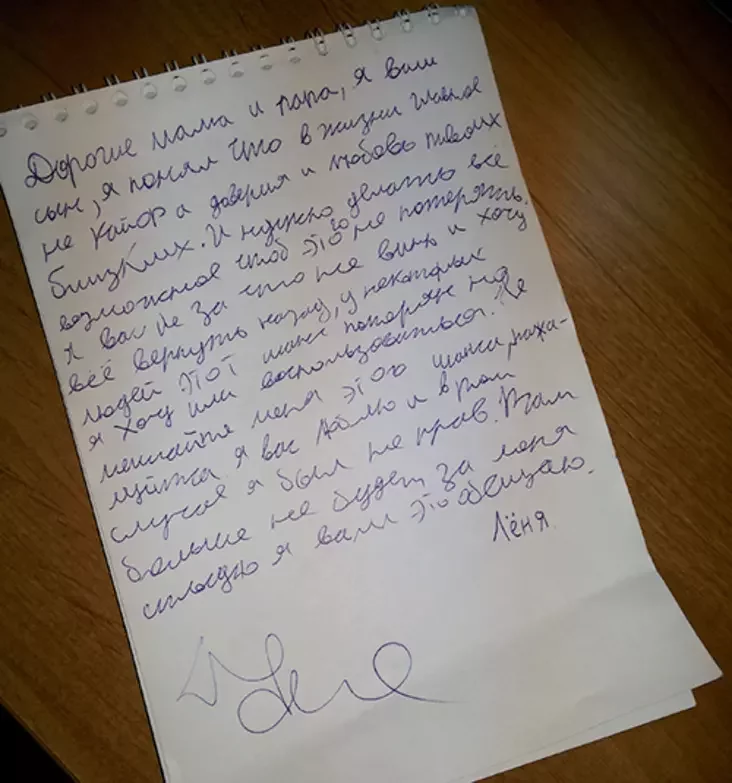 Дорогие мама и папа, я ваш
сын, я понял что в жизни главное
не кайф а доверия и любовь твоих
близких. И нужно делать всё
возможное чтоб это го не потерять.
Я вас не за что не виню и хочу
всё вернуть назад, у некоторых
людей этот шанс потерян но
я хочу им воспользоваться. Не
лешайте меня этого шанса, пожа-
луйста я вас люблю и в том
случае я был не прав. Там
больше не будет за меня
стыдно я вам это обещаю.
Лёня.